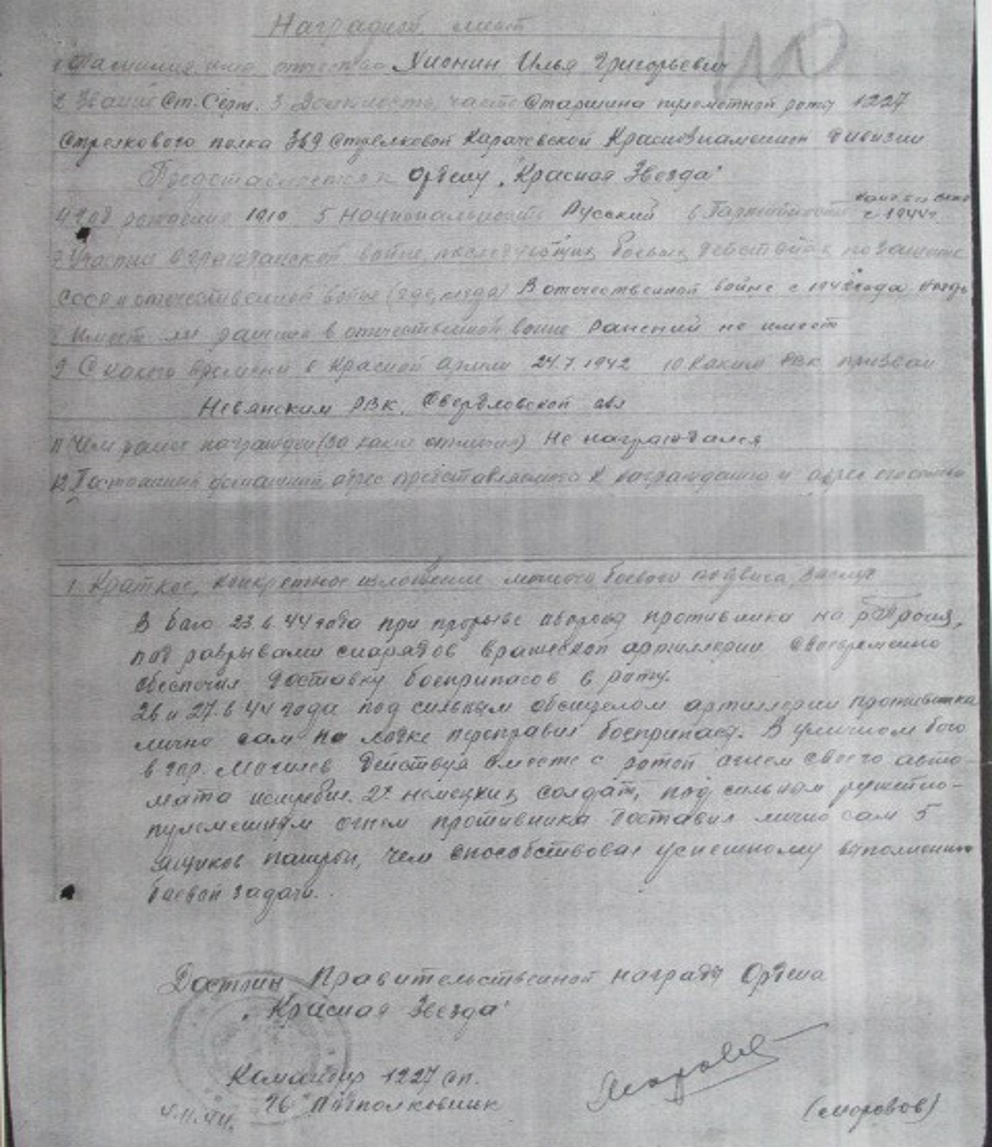 Наградной лист
1 Фамилия имя отчество Хионин Илья Григорьевич
2 Звание Ст. Серж. 3. Должность, часть Старшина пулеметной роты 1227
Стрелкового полка 369 Стрелковой Карачевской Краснознаменной дивизии
Представляется к Ордену „Красная Звезда"
4 Год рождения 1910 5 Национальность Русский 6 Партийность
с 1944г
7 Участие в гражданской войне, последующих боевых действиях по защите
СССР и отечественной войне (где, когда) В отечественной войне с 1942 года
8 Имеет ли ранения в отечественной войне Ранений не имеет
9 С какого времени в Красной Армии 24.7.1942 10 Каким РВК призван
Невянским РВК, Свердловской обл
11 Чем ранее награжден (за какие отличия) Не награждался
12 Постоянный домашний адрес представляемого к награждению и адрес его семьи
1 Краткое, конкретное изложение личного боевого подвига, заслуг
В бою 23.6.44 года при прорыве обороны противника на р. Проня,
под разрывами снарядов вражеской артиллерии своевременно
обеспечил доставку боеприпасов в роту.
26 и 27.6.44 года под сильным обстрелом артиллерии противника
лично сам на лодке переправил боеприпасы. В уличном бою
в гор. Могилев действуя вместе с ротой огнем своего авто-
мата истребил 2х немецких солдат, под сильным ружейно-
пулеметным огнем противника доставил лично сам 5
ящиков патрон, чем способствовал успешному выполнению
боевой задачи.
Достоин Правительственной награды Ордена
„Красная Звезда"
Командир 1227 сп.
Подполковник
(Моровов)